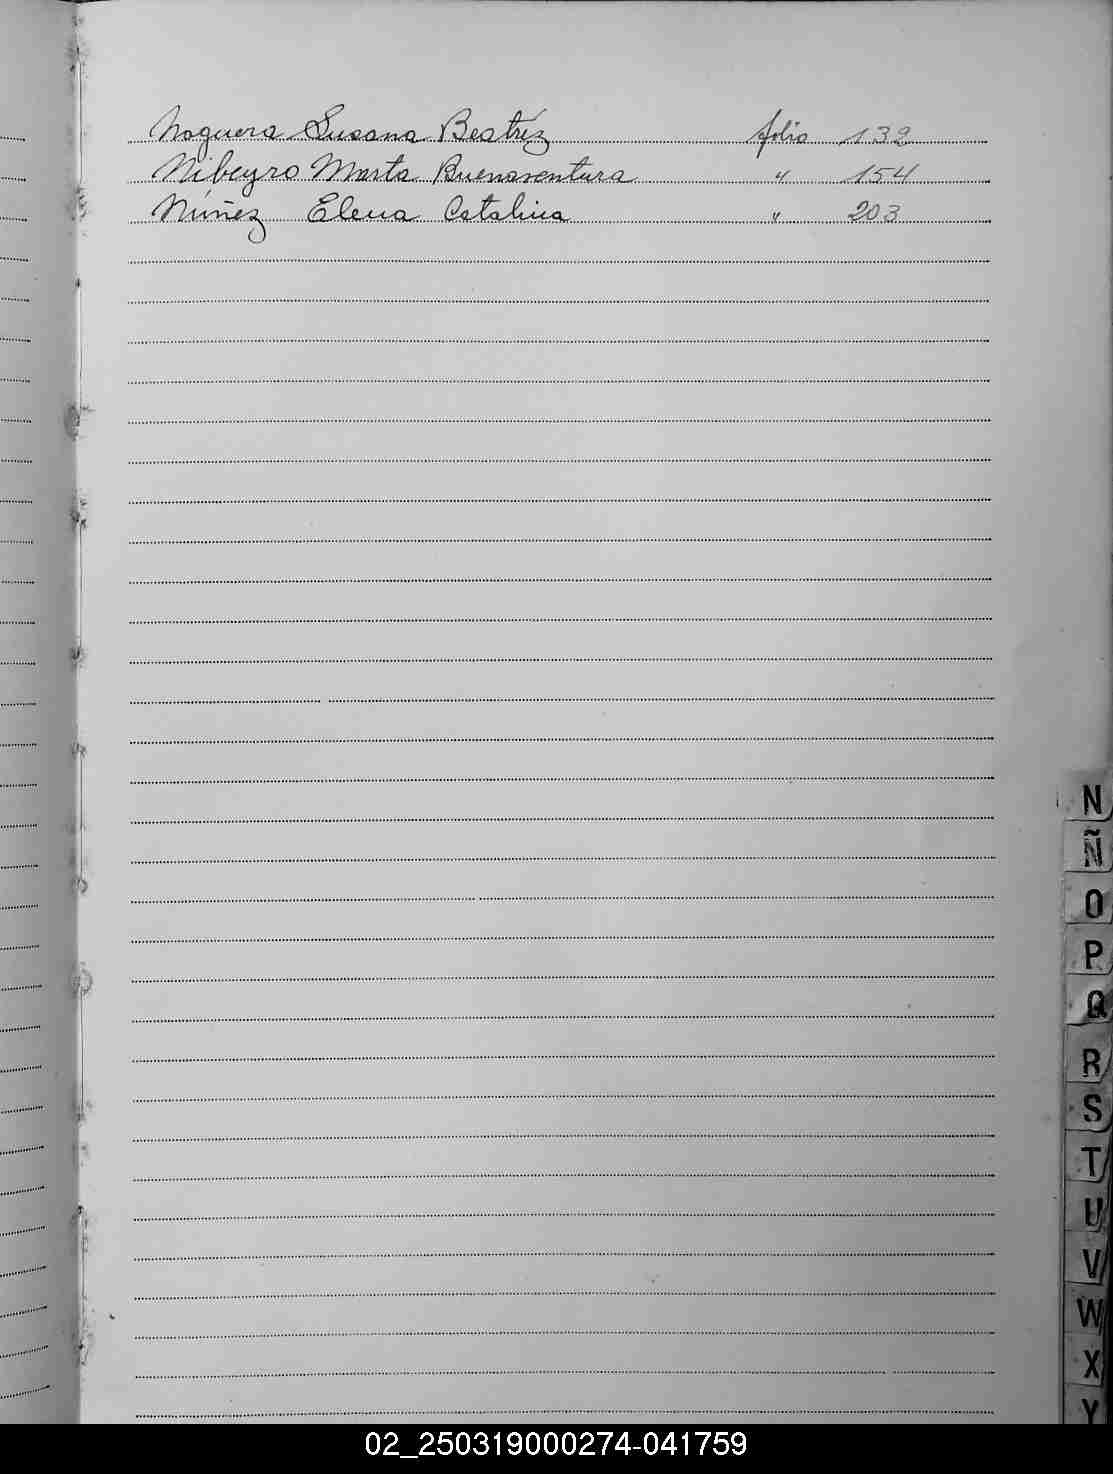 Noguera Susana Beatríz folio 132
Nibeyro Marta Buenaventura " 154
Núñez Elena Catalina " 203
N
Ñ
O
P
Q
R
S
T
U
V
W
X
Y
02_250319000274-041759